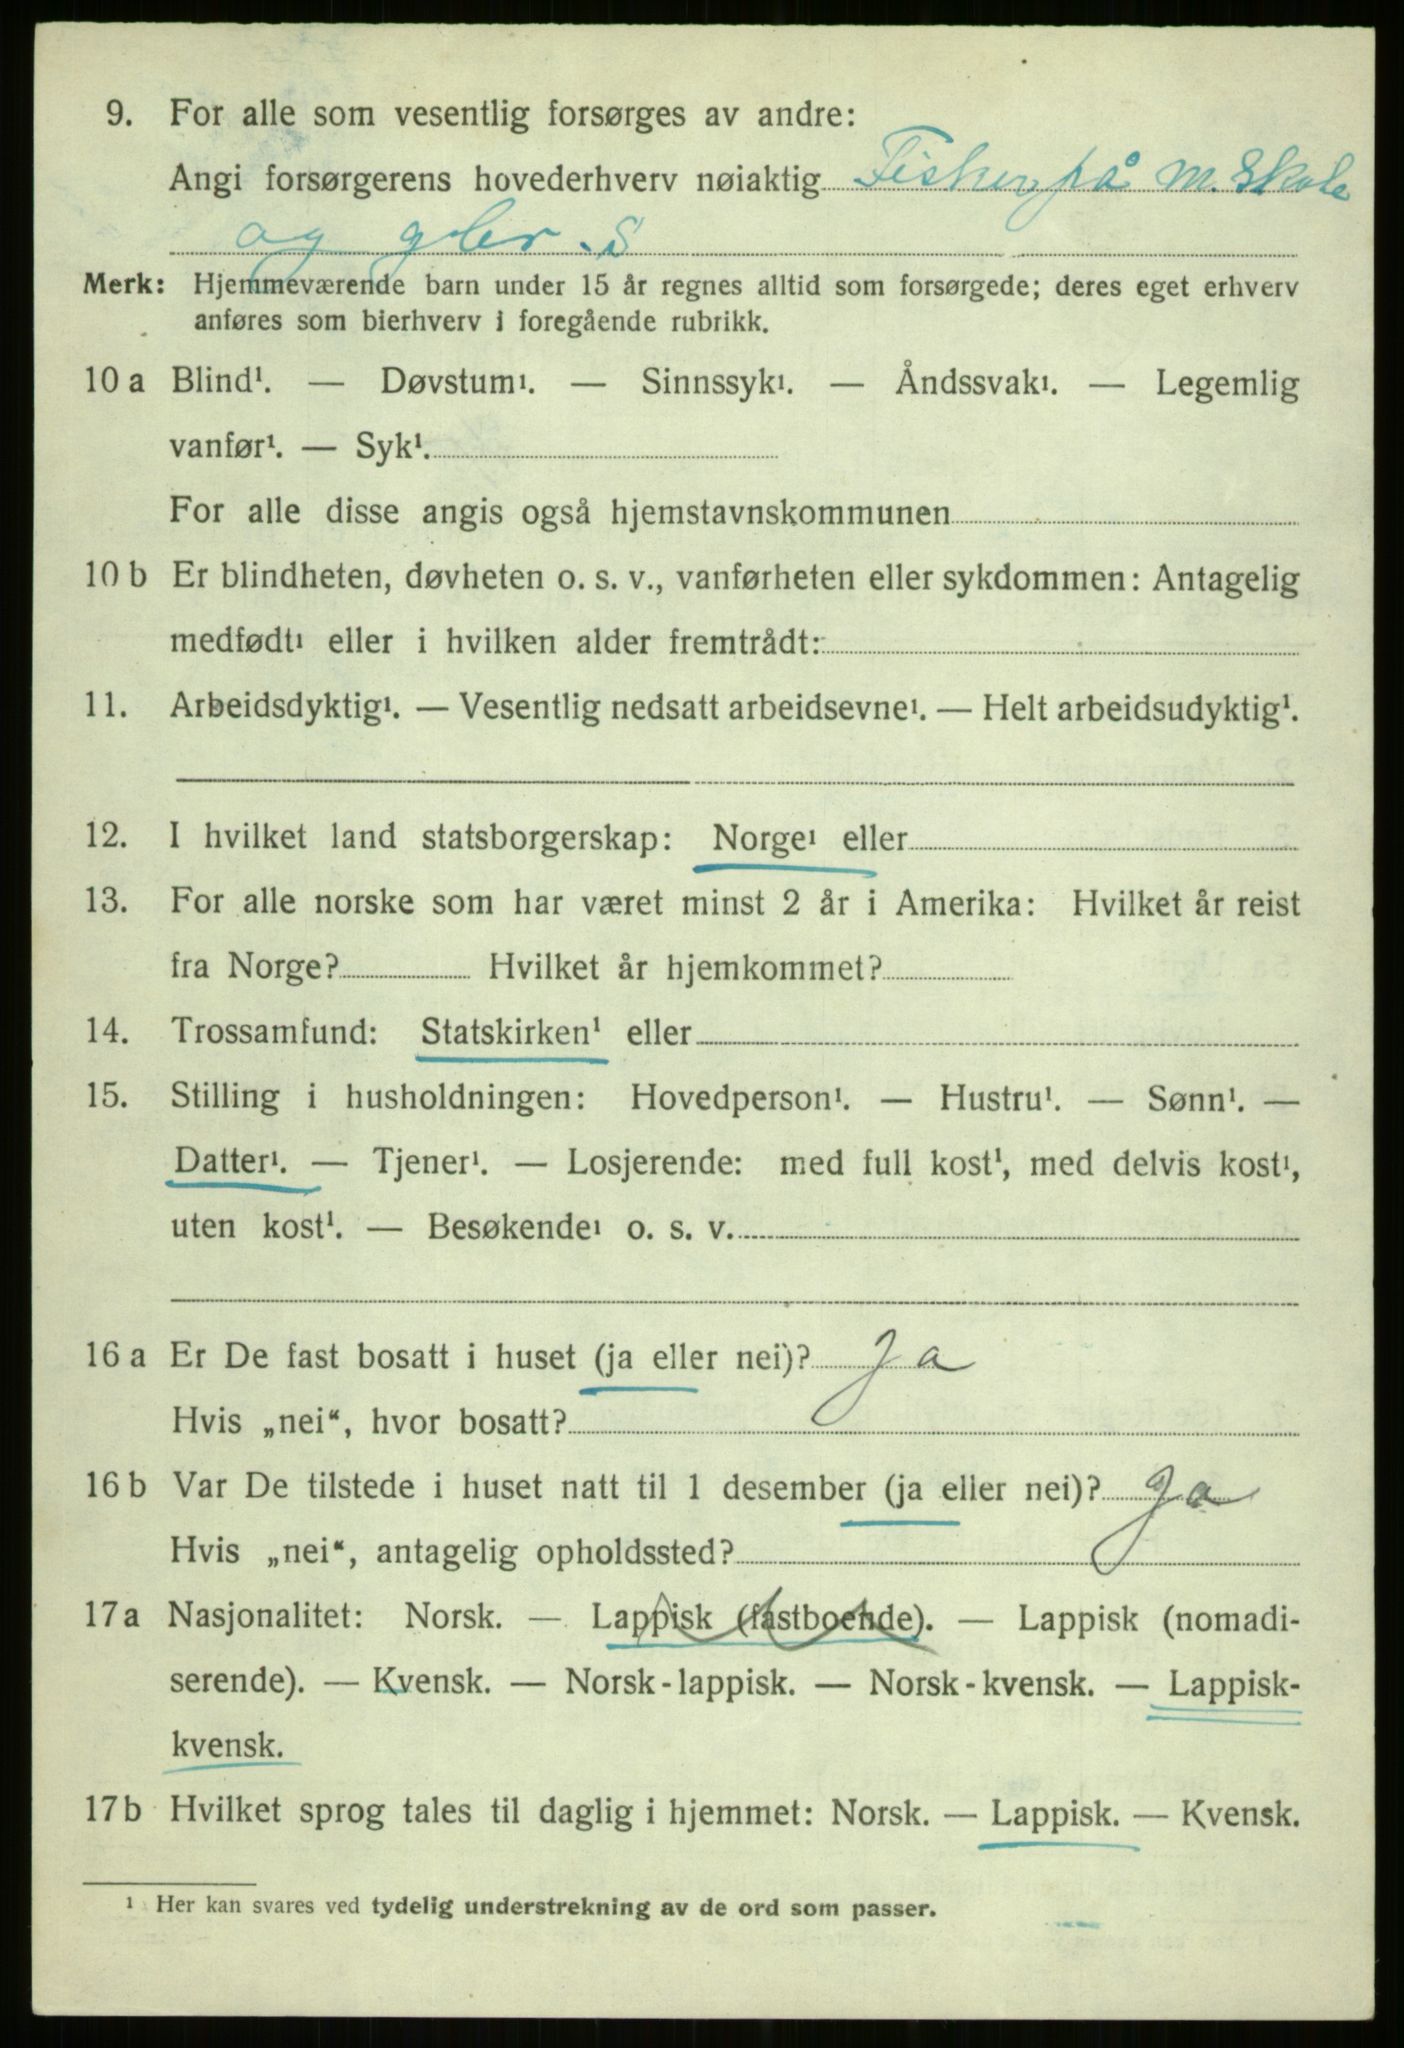 9. For alle som vesentlig forsørges av andre:
Angi forsørgerens hovederhverv nøiaktig Fisker på M. Skole
og gbr. s
Merk: Hjemmeværende barn under 15 år regnes alltid som forsørgede; deres eget erhverv
anføres som bierhverv i foregående rubrikk.
10 a Blind¹. — Døvstum¹. — Sinnssyk¹. — Åndssvak¹. — Legemlig
vanfør¹. — Syk¹.
For alle disse angis også hjemstavnskommunen
10 b Er blindheten, døvheten o. s. v., vanførheten eller sykdommen: Antagelig
medfødt¹ eller i hvilken alder fremtrådt:
11. Arbeidsdyktig¹. — Vesentlig nedsatt arbeidsevne¹. — Helt arbeidsudyktig¹.
12. I hvilket land statsborgerskap: Norge¹ eller
13. For alle norske som har været minst 2 år i Amerika: Hvilket år reist
fra Norge? Hvilket år hjemkommet?
14. Trossamfund: Statskirken¹ eller
15. Stilling i husholdningen: Hovedperson¹. — Hustru¹. — Sønn¹. —
Datter¹. — Tjener¹. — Losjerende: med full kost¹, med delvis kost¹,
uten kost¹. — Besøkende¹ o. s. v.
16 a Er De fast bosatt i huset (ja eller nei)? Ja
Hvis „nei“, hvor bosatt?
16 b Var De tilstede i huset natt til 1 desember (ja eller nei)? Ja
Hvis „nei“, antagelig opholdssted?
17 a Nasjonalitet: Norsk. — Lappisk (fastboende). — Lappisk (nomadi-
serende). — Kvensk. — Norsk-lappisk. — Norsk-kvensk. — Lappisk-
kvensk.
17 b Hvilket sprog tales til daglig i hjemmet: Norsk. — Lappisk. — Kvensk.
¹ Her kan svares ved tydelig understrekning av de ord som passer.